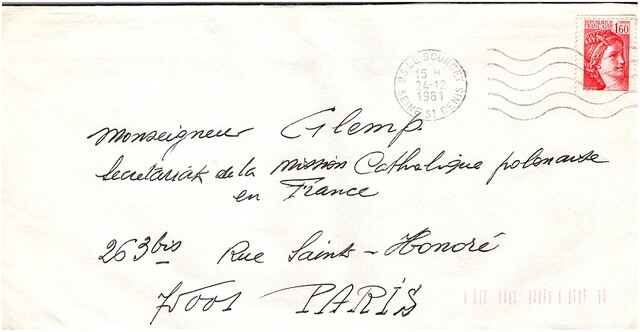 REPUBLIQUE
FRANÇAISE
1,60
93 LE BOURGET
15 H
24-12
1981
SEINE ST DENIS
Monseigneur Glemp
Secretariat de la Mission Catholique polonaise
en France
263 bis Rue Saint-Honoré
75001 PARIS